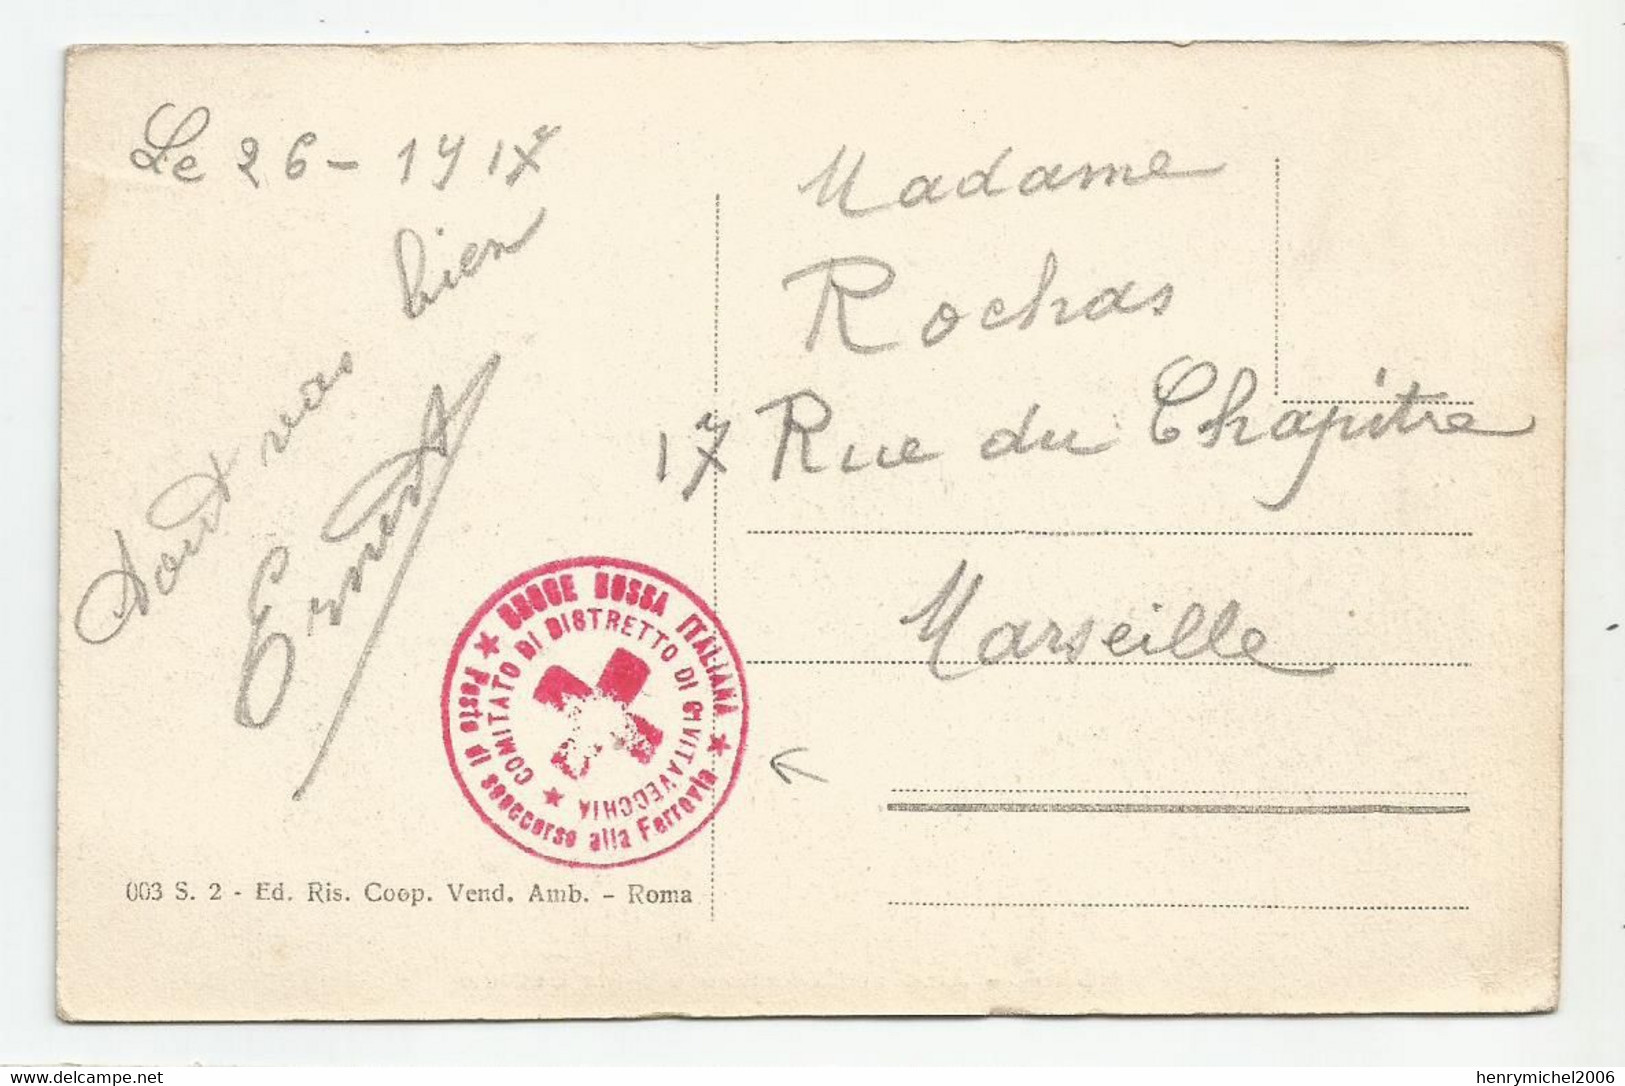 Le 26 - 1917
tout vas bien
Ernest
Madame
Rochas
17 Rue du Chapitre
Marseille
★ CROCE ROSSA ITALIANA ★
Posto di soccorso alla Ferrovia
COMITATO DI DISTRETTO DI CIVITAVECCHIA ★
003 S. 2 - Ed. Ris. Coop. Vend. Amb. - Roma
henrymichel2006